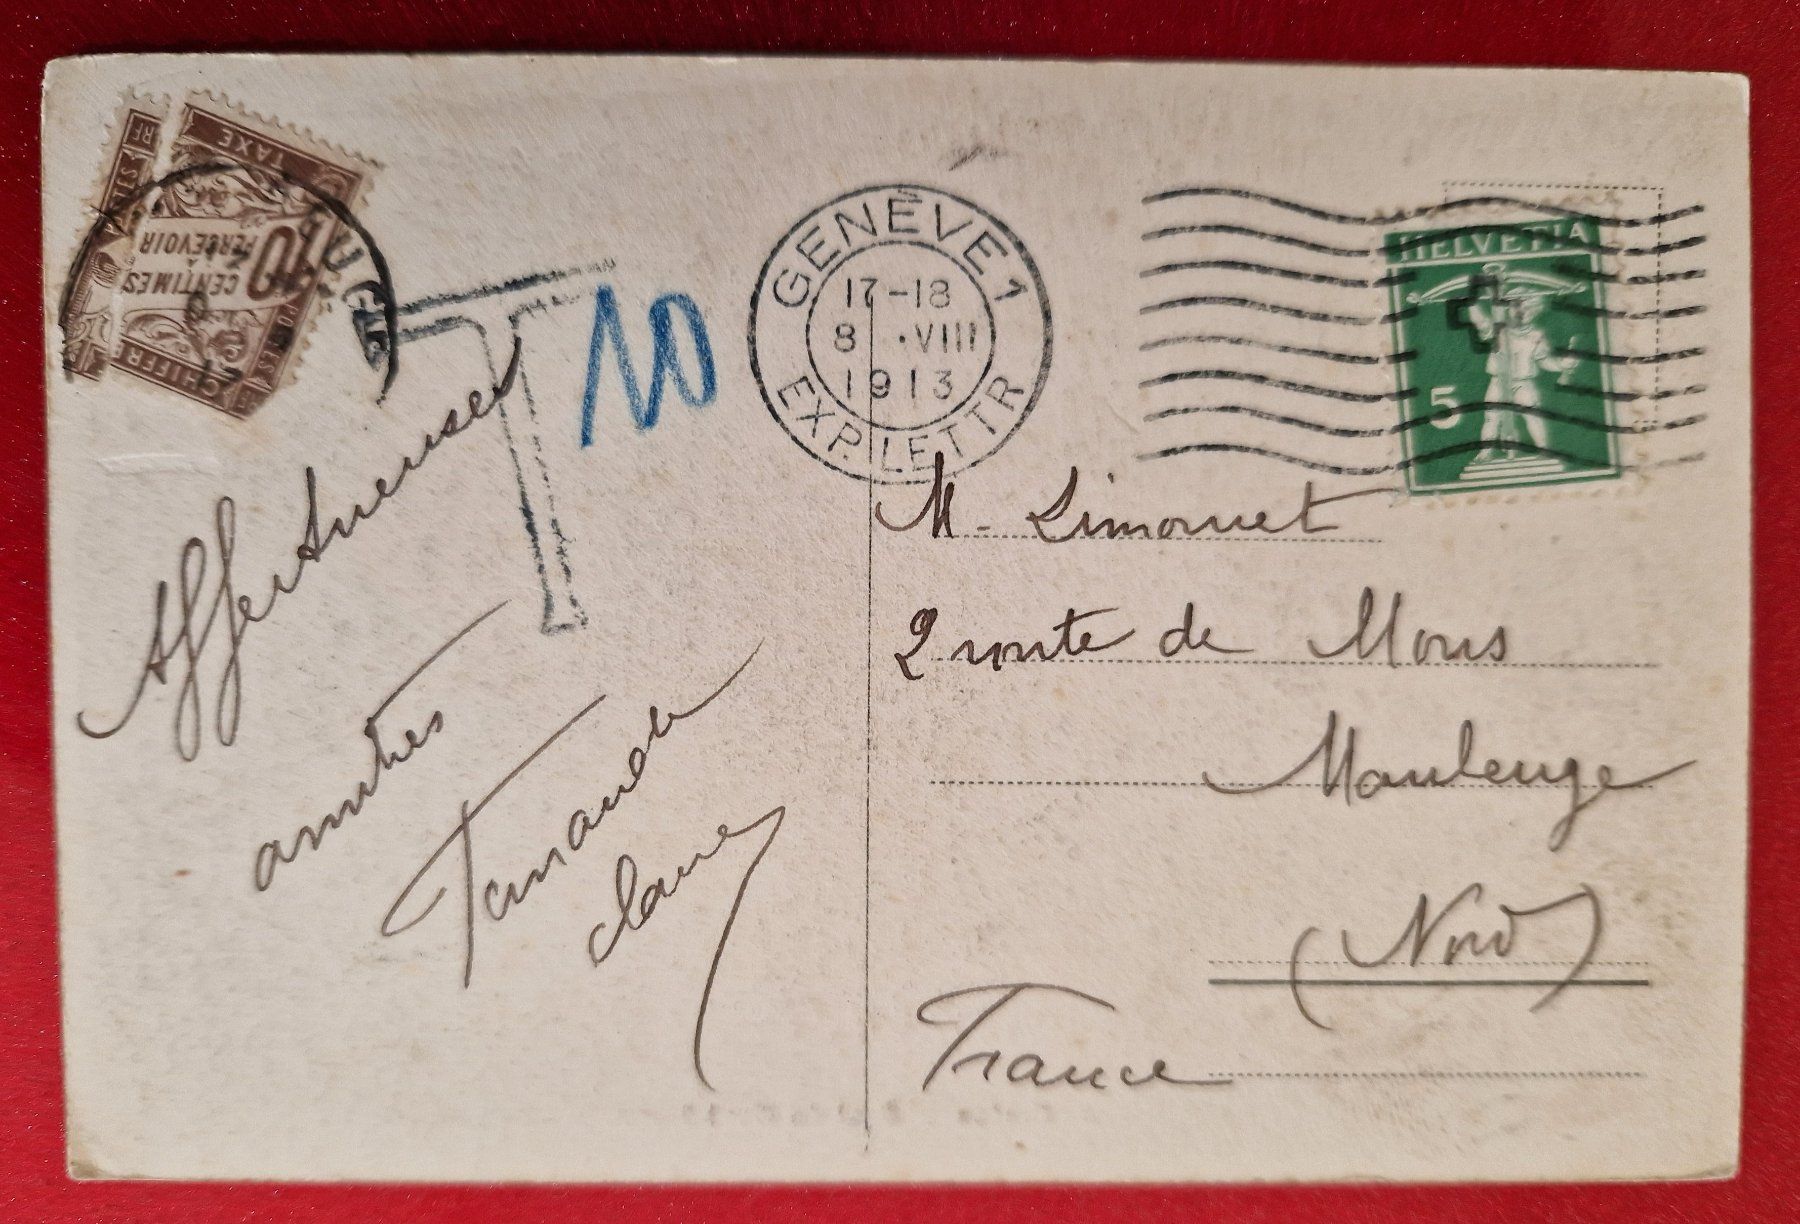 RF
POSTES
TAXE
10
CENTIMES
À
PERCEVOIR
CHIFFRE
T 10
GENÈVE 1
17-18
8 . VIII
1913
EXP. LETTR
HELVETIA
5
Affectueuses
amitiés
Fernande
Claire
M. Limonnet
2 route de Mons
Maubeuge
(Nord)
France